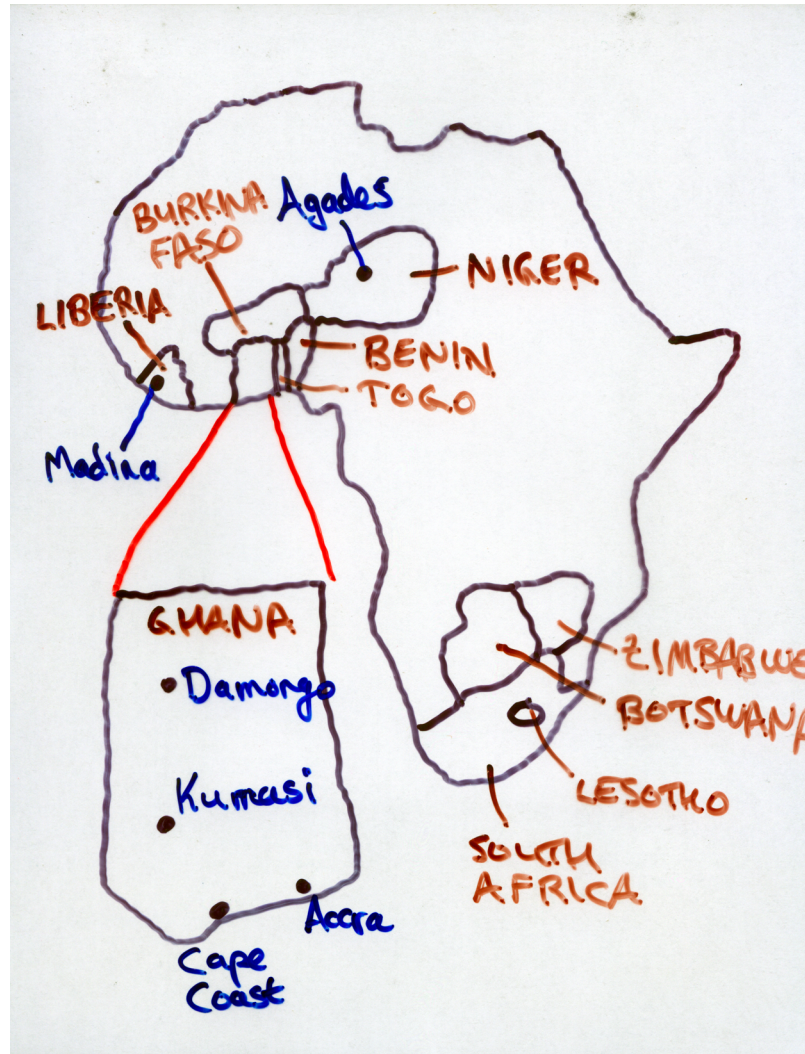 BURKINA
FASO
Agades
NIGER
LIBERIA
BENIN
TOGO
Madina
GHANA
Damongo
Kumasi
Accra
Cape
Coast
ZIMBABWE
BOTSWANA
LESOTHO
SOUTH
AFRICA